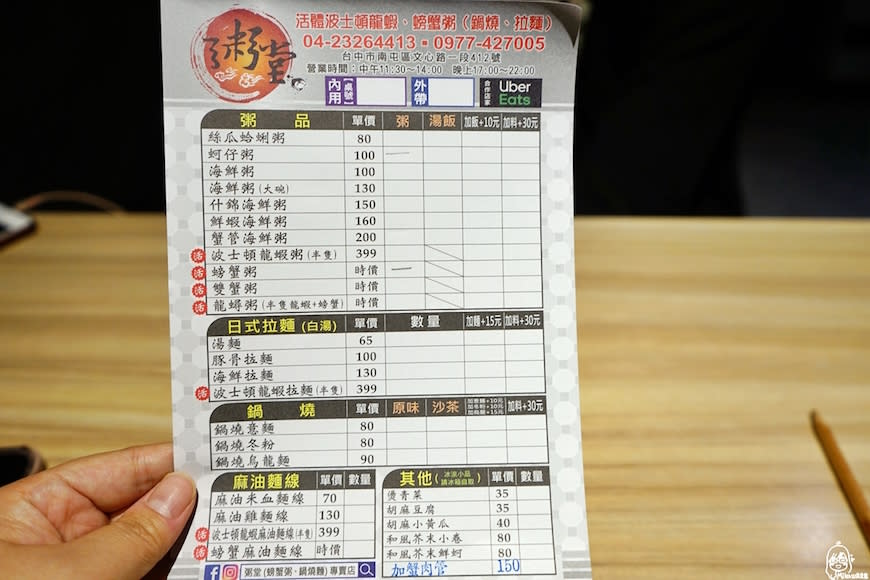 粥堂
活體波士頓龍蝦、螃蟹粥(鍋燒、拉麵)
04-23264413 • 0977-427005
台中市南屯區文心路一段412號
營業時間:中午11:30～14:00 晚上17:00～22:00
內用【桌號】 外帶 合作店家 Uber Eats
粥品 單價 粥 湯飯 加飯+10元 加料+30元
絲瓜蛤蜊粥 80
蚵仔粥 100 一
海鮮粥 100
海鮮粥(大碗) 130
什錦海鮮粥 150
鮮蝦海鮮粥 160
蟹管海鮮粥 200
活 波士頓龍蝦粥(半隻) 399
活 螃蟹粥 時價 一
活 雙蟹粥 時價
活 龍蟳粥(半隻龍蝦+螃蟹) 時價
日式拉麵(白湯) 單價 數量 加麵+15元 加料+30元
湯麵 65
豚骨拉麵 100
海鮮拉麵 130
活 波士頓龍蝦拉麵(半隻) 399
鍋燒 單價 原味 沙茶 加意麵+10元 加冬粉+10元 加烏龍+15元 加料+30元
鍋燒意麵 80
鍋燒冬粉 80
鍋燒烏龍麵 90
麻油麵線 單價 數量
麻油米血麵線 70
麻油雞麵線 130
活 波士頓龍蝦麻油麵線(半隻) 399
活 螃蟹麻油麵線 時價
粥堂(螃蟹粥、鍋燒麵)專賣店
其他(冰涼小品 請冰箱自取) 單價 數量
優青菜 35
胡麻豆腐 35
胡麻小黃瓜 40
和風芥末小卷 80
和風芥末鮮蚵 80
加蟹肉管 150